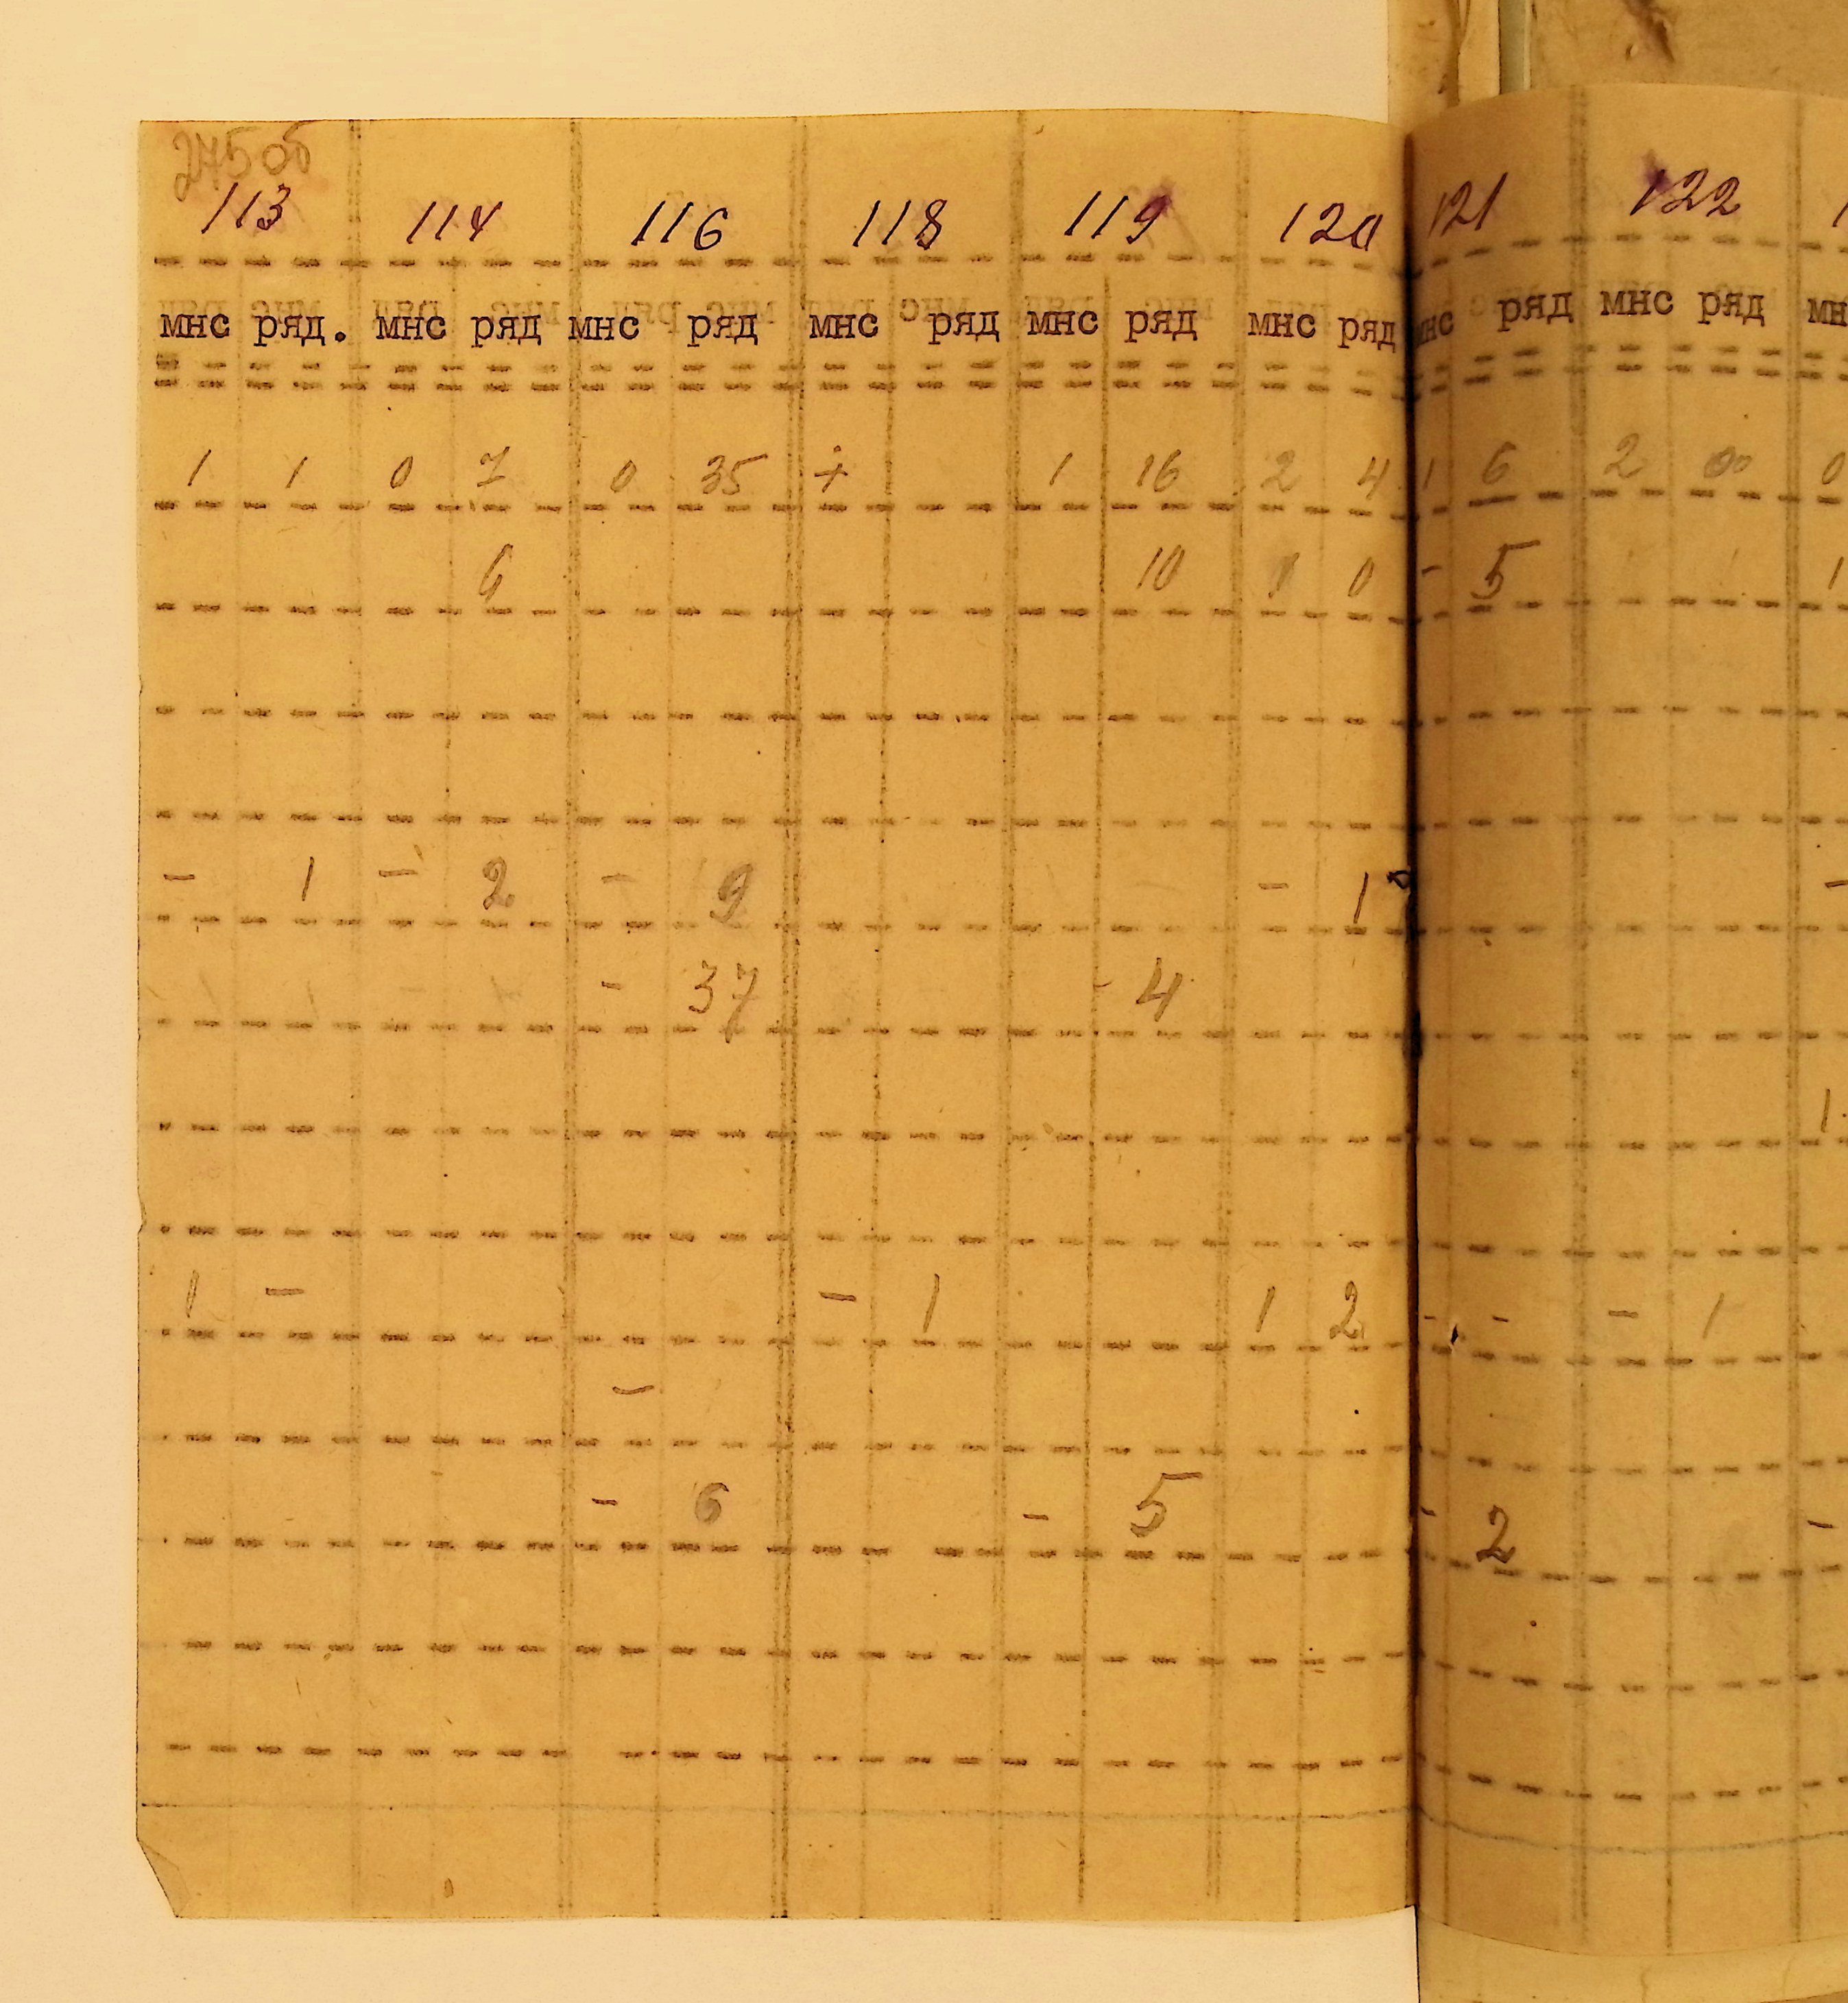 275об
113 114 116 118 119 120 121 122
мнс ряд. мнс ряд мнс ряд мнс ряд мнс ряд мнс ряд мнс ряд мнс ряд мн
1 1 0 7 0 35 + 1 16 2 4 1 6 2 0
6 10 1 0 - 5 1
- 1 - 2 - 9 - 1 -
- 37 - 4
1
1 - - 1 1 2 - - - 1
-
- 6 - 5 - 2 -